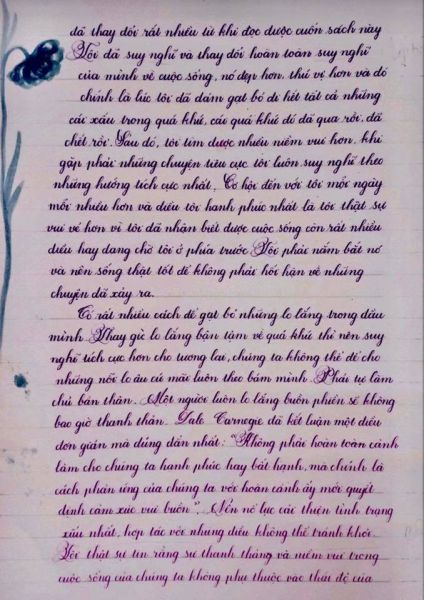 đã thay đổi rất nhiều từ khi đọc được cuốn sách này
Tôi đã suy nghĩ và thay đổi hoàn toàn suy nghĩ
của mình về cuộc sống, nó đẹp hơn, thú vị hơn và đó
chính là lúc tôi đã dám gạt bỏ đi hết tất cả những
cái xấu trong quá khứ, cái quá khứ đó đã qua rồi, đã
chết rồi. Sau đó, tôi tìm được nhiều niềm vui hơn, khi
gặp phải những chuyện tiêu cực tôi luôn suy nghĩ theo
những hướng tích cực nhất. Cơ hội đến với tôi mỗi ngày
mỗi nhiều hơn và điều tôi hạnh phúc nhất là tôi thật sự
vui vẻ hơn vì tôi đã nhận biết được cuộc sống còn rất nhiều
điều hay đang chờ tôi ở phía trước. Tôi phải nắm bắt nó
và nên sống thật tốt để không phải hối hận về những
chuyện đã xảy ra.
Có rất nhiều cách để gạt bỏ những lo lắng trong đầu
mình. Thay gì lo lắng bận tậm về quá khứ thì nên suy
nghĩ tích cực hơn cho tương lai, chúng ta không thể để cho
những nỗi lo âu cứ mãi luôn theo bám mình. Phải tự làm
chủ bản thân. Một người luôn lo lắng buồn phiền sẽ không
bao giờ thanh thản. Dale Carnegie đã kết luận một điều
đơn giản mà đúng đắn nhất: "Không phải hoàn toàn cảnh
làm cho chúng ta hạnh phúc hay bất hạnh, mà chính là
cách phản ứng của chúng ta với hoàn cảnh ấy mới quyết
định cảm xúc vui buồn". Nên nổ lực cải thiện tình trạng
xấu nhất, hợp tác với những điều không thể tránh khỏi.
Tôi thật sự tin rằng sự thanh thản và niềm vui trong
cuộc sống của chúng ta không phụ thuộc vào thái độ của